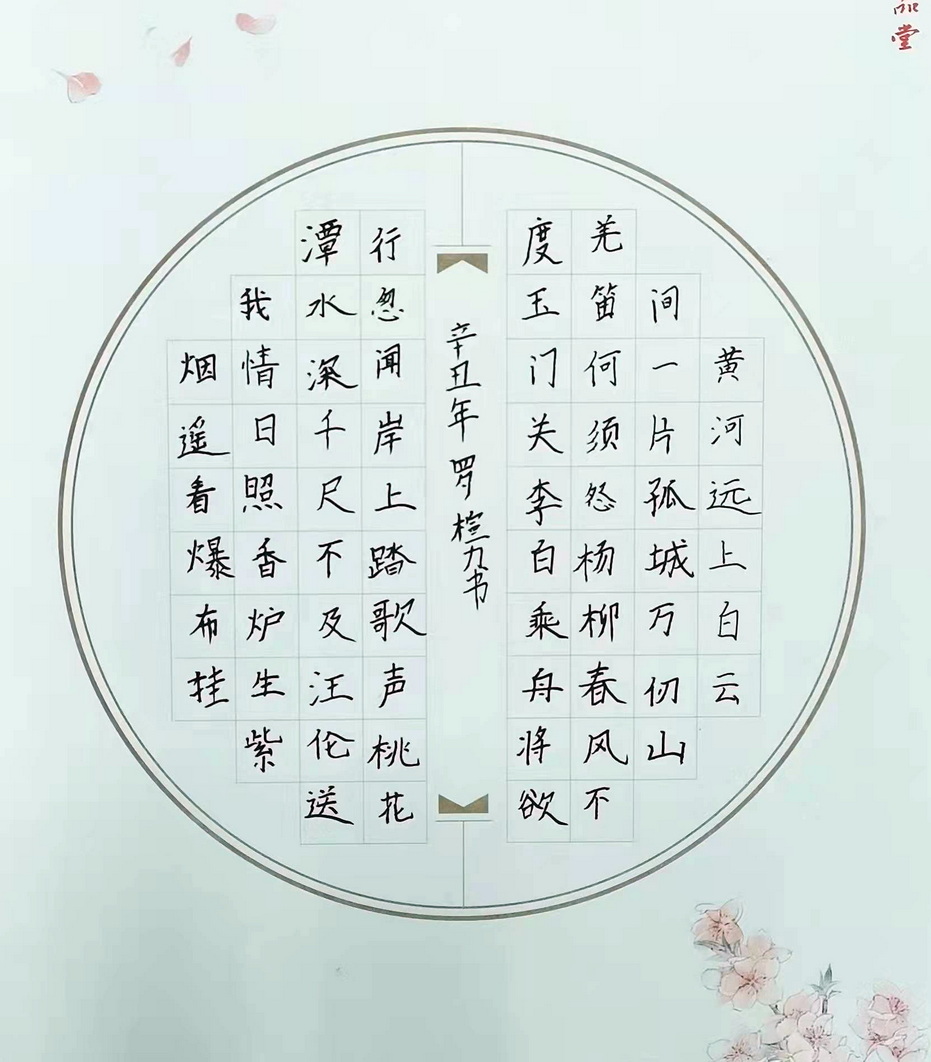 堂
黄河远上白云
间一片孤城万仞山
羌笛何须怨杨柳春风不
度玉门关李白乘舟将欲
辛丑年 罗 书
行忽闻岸上踏歌声桃花
潭水深千尺不及汪伦送
我情日照香炉生紫
烟遥看爆布挂